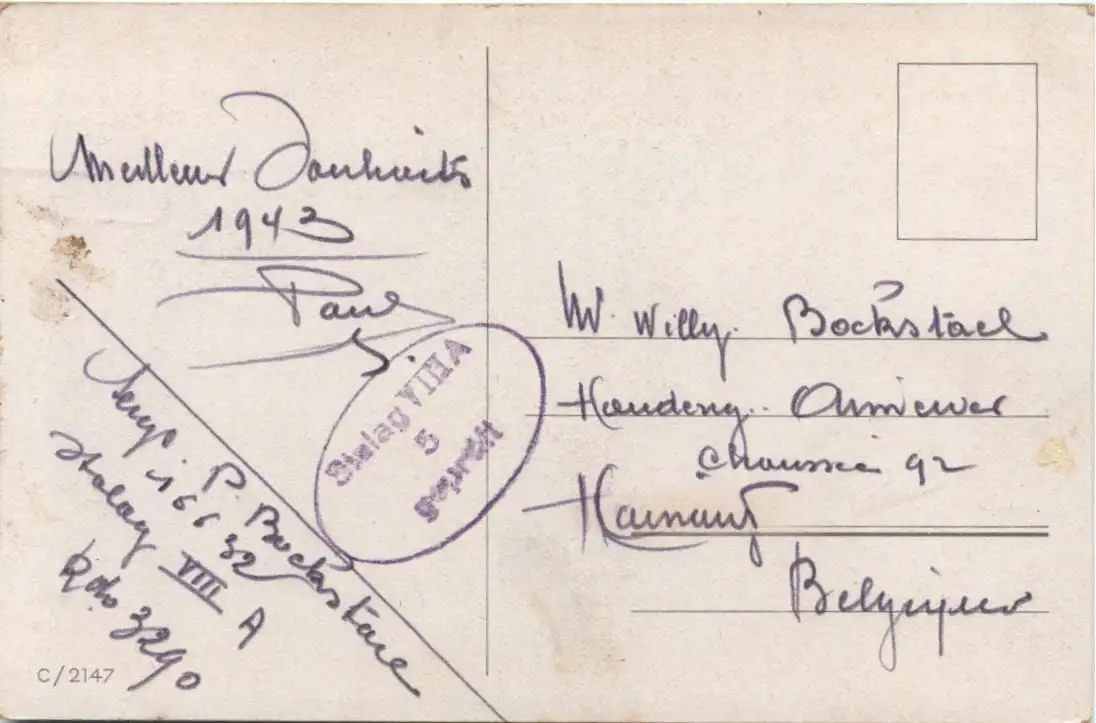 Meilleurs Souhaits
1943
Paul
Serg. P. Bockstael
16632
Stalag VIII A
Kdo 3290
Stalag VIIIA
5
geprüft
C/2147
Mr. Willy. Bockstael
Houdeng.. Aimeries
Chaussée 92
Hainaut
Belgique